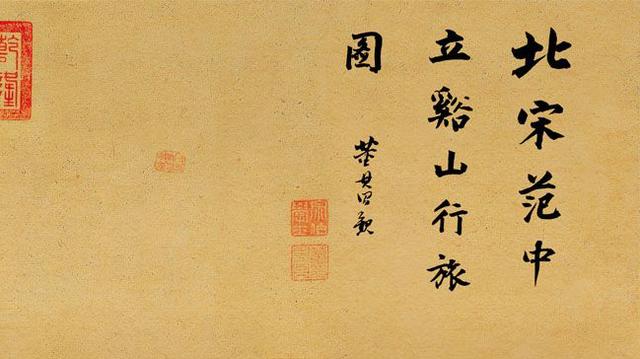 北宋范中
立谿山行旅
圖
董其昌觀
乾隆